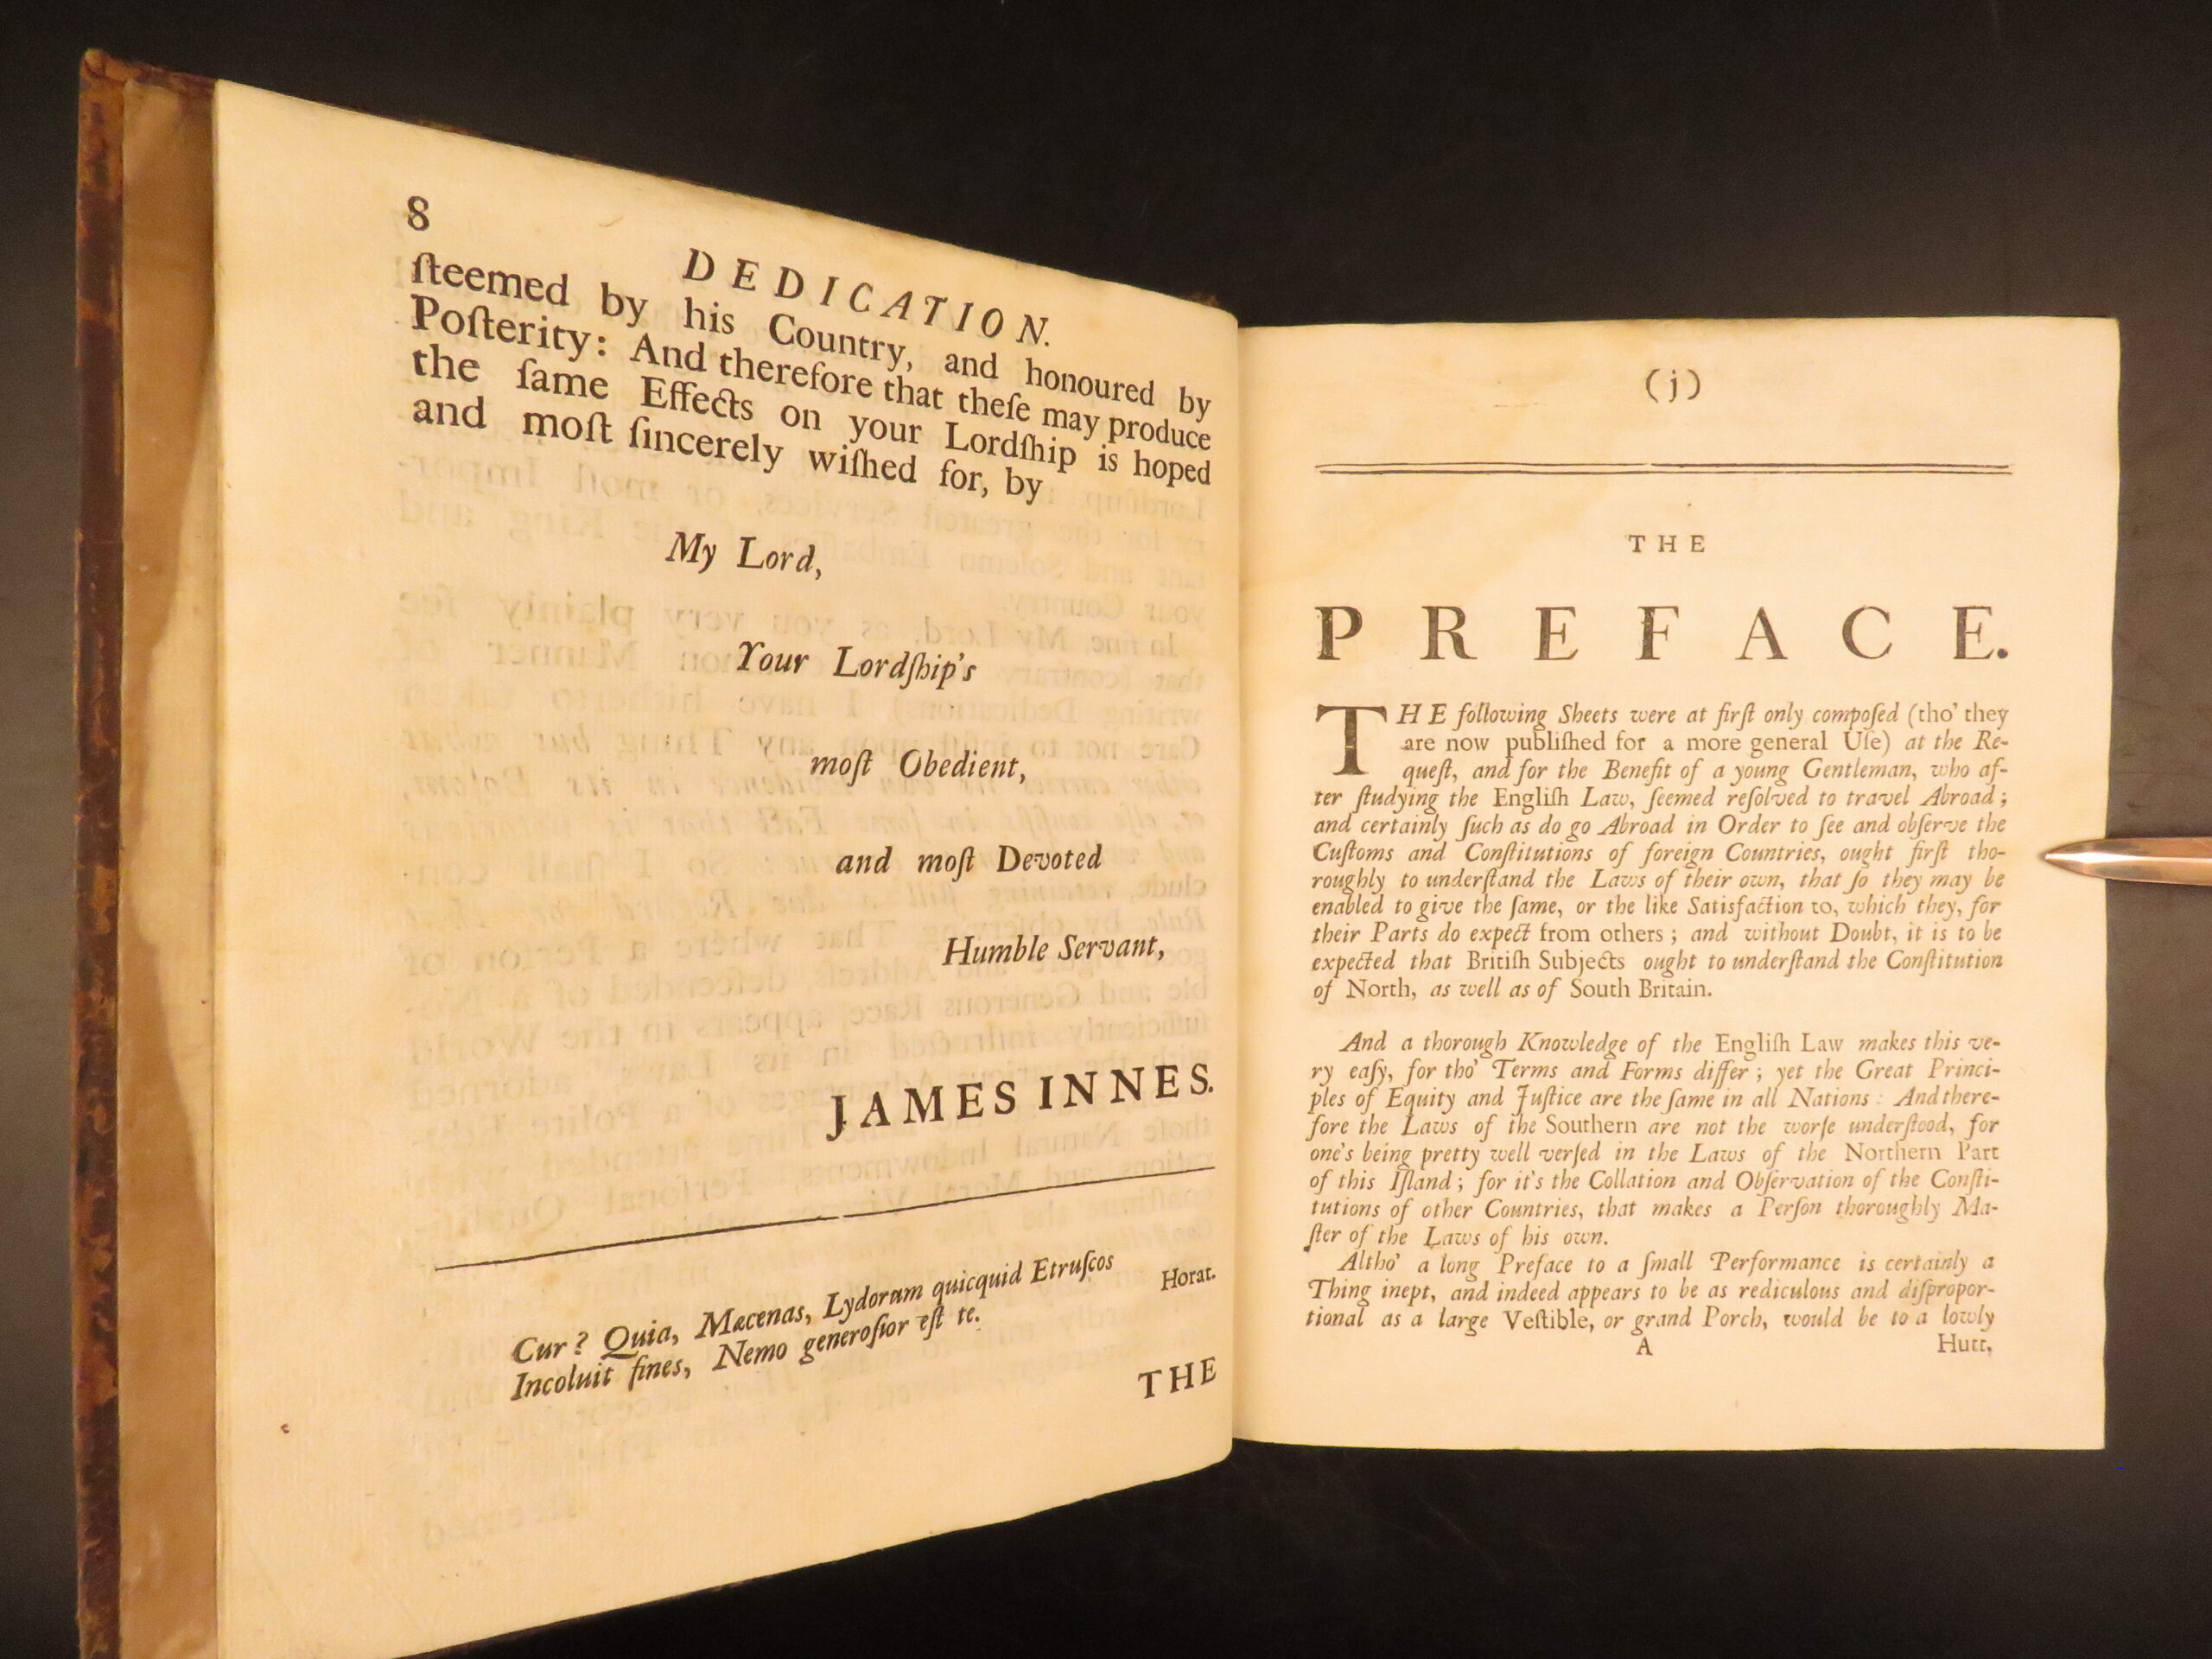 8
DEDICATION.
ſteemed by his Country, and honoured by
Poſterity: And therefore that theſe may produce
the ſame Effects on your Lordſhip is hoped
and moſt ſincerely wiſhed for, by
My Lord,
Your Lordſhip's
moſt Obedient,
and moſt Devoted
Humble Servant,
JAMES INNES.
Cur? Quia, Mæcenas, Lydorum quicquid Etruſcos
Incoluit fines, Nemo generoſior eſt te.
Horat.
THE
(j)
THE
PREFACE.
THE following Sheets were at firſt only compoſed (tho' they
are now publiſhed for a more general Uſe) at the Re-
queſt, and for the Benefit of a young Gentleman, who af-
ter ſtudying the Engliſh Law, ſeemed reſolved to travel Abroad;
and certainly ſuch as do go Abroad in Order to ſee and obſerve the
Cuſtoms and Conſtitutions of foreign Countries, ought firſt tho-
roughly to underſtand the Laws of their own, that ſo they may be
enabled to give the ſame, or the like Satisfaction to, which they, for
their Parts do expect from others; and without Doubt, it is to be
expected that Britiſh Subjects ought to underſtand the Conſtitution
of North, as well as of South Britain.
And a thorough Knowledge of the Engliſh Law makes this ve-
ry eaſy, for tho' Terms and Forms differ; yet the Great Princi-
ples of Equity and Juſtice are the ſame in all Nations: And there-
fore the Laws of the Southern are not the worſe underſtood, for
one's being pretty well verſed in the Laws of the Northern Part
of this Iſland; for it's the Collation and Obſervation of the Conſti-
tutions of other Countries, that makes a Perſon thoroughly Ma-
ſter of the Laws of his own.
Altho' a long Preface to a ſmall Performance is certainly a
Thing inept, and indeed appears to be as rediculous and diſpropor-
tional as a large Veſtible, or grand Porch, would be to a lowly
A Hutt,